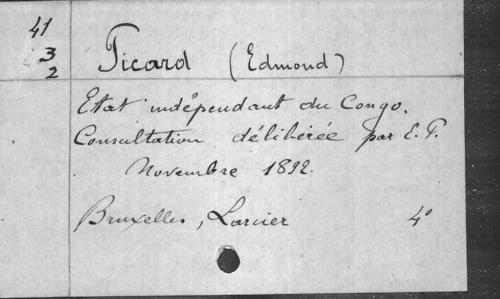 41
3
2
Picard (Edmond)
Etat indépendant du Congo.
Consultation délibérée par E. P.
Novembre 1892.
Bruxelles, Larcier 4°